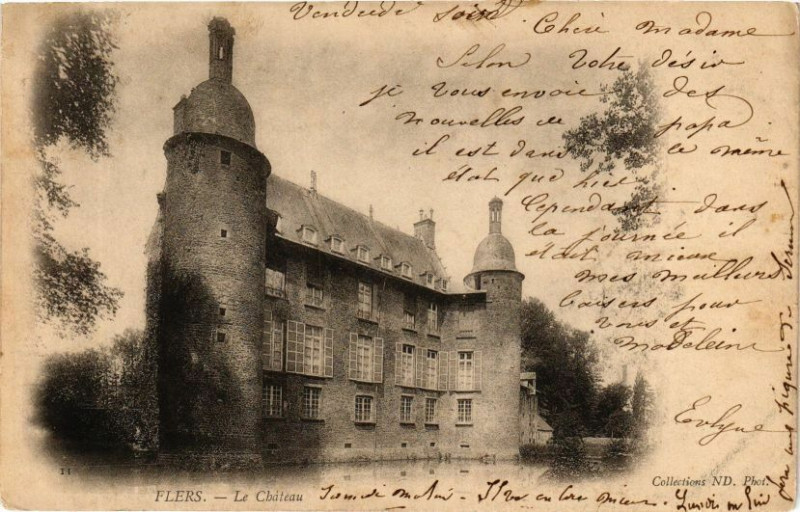 Vendredi soir
Chère Madame
Selon votre désir
je vous envoie des
nouvelles de papa
il est dans le même
état que hier
Cependant dans
la journée il
était mieux
mes meilleurs
baisers pour
vous et
Madeleine
Evlyne
11
Collections ND. Phot.
FLERS. — Le Château
Samedi matin - Il va un peu mieux.